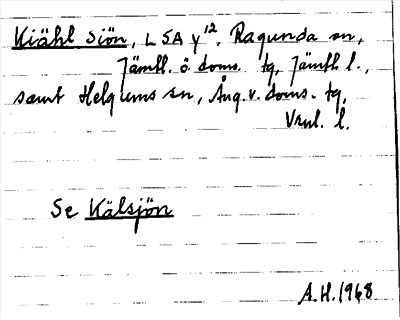 Kiähl Siön, LSA y¹², Ragunda sn,
Jämtl. ö. doms. tg, Jämtl l.,
samt Helgums sn, Ång. v. doms. tg,
Vrnl. l.
Se Kälsjön
A.H. 1968